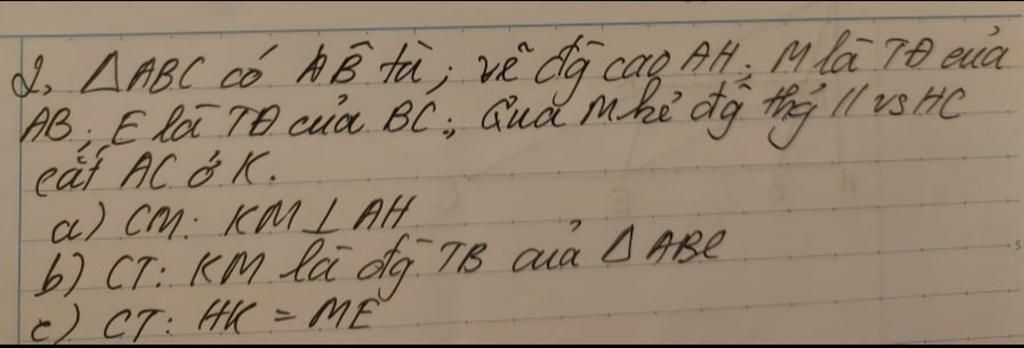 2, △ABC có B̂ tù; vẽ đg̃ cao AH. M là TĐ của
AB; E là TĐ của BC; Qua M kẻ đg̃ thg̉ // vs HC
cắt AC ở K.
a) CM: KM ⊥ AH
b) CT: KM là đg̃ TB của △ABC
c) CT: HK = ME